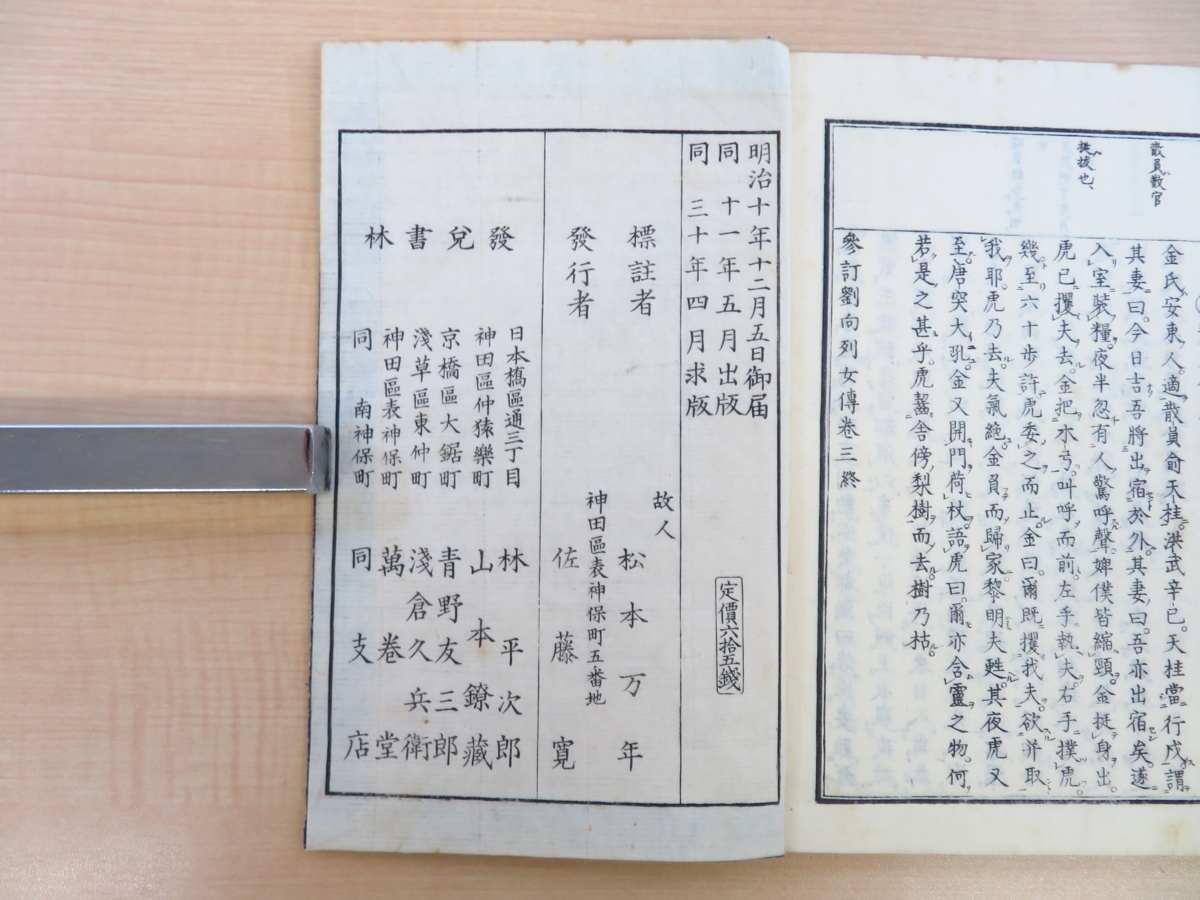 散員散官
挺拔也
金氏安東人適散員俞天桂洪武辛巳天桂當行戍謂
其妻曰今日吉吾將出宿於外其妻曰吾亦出宿矣遂
入室裝糧夜半忽有人驚呼聲婢僕皆縮頸金挺身出
虎已攫夫去金把木弓叫呼而前左手執夫右手撲虎
幾至六十步許虎委之而止金曰爾既攫我夫欲并取
我耶虎乃去夫氣絶金員而歸家黎明夫甦其夜虎又
至唐突大吼金又開門荷杖語虎曰爾亦含靈之物何
若是之甚乎虎齧舍傍梨樹而去樹乃枯
參訂劉向列女傳卷三終
明治十年十二月五日御届
同十一年五月出版
同三十年四月求版
定價六拾五錢
標註者 故人 松本万年
神田區表神保町五番地
發行者 佐藤寛
發兌書林
日本橋區通三丁目 林平次郎
神田區仲猿樂町 山本鐐藏
京橋區大鋸町 青野友三郎
淺草區東仲町 淺倉久兵衛
神田區表神保町 萬卷堂
同南神保町 同支店